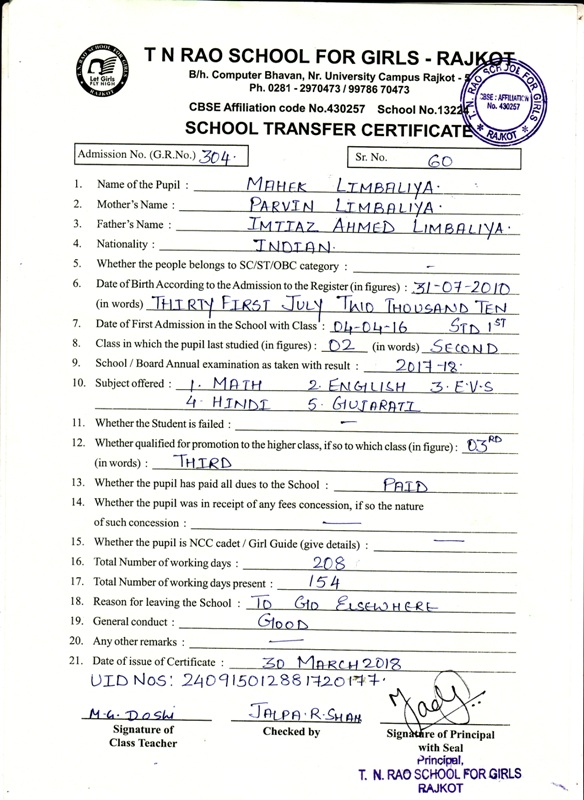 T. N. RAO SCHOOL FOR GIRLS
Let Girls
FLY HIGH
RAJKOT
T N RAO SCHOOL FOR GIRLS - RAJKOT
B/h. Computer Bhavan, Nr. University Campus Rajkot - 5
Ph. 0281 - 2970473 / 99786 70473
CBSE Affiliation code No.430257 School No.13224
T. N. RAO SCHOOL FOR GIRLS
CBSE : AFFILIATION
No. 430257
* RAJKOT *
SCHOOL TRANSFER CERTIFICATE
Admission No. (G.R.No.) 304. Sr. No. 60
1. Name of the Pupil : MAHEK LIMBALIYA.
2. Mother's Name : PARVIN LIMBALIYA.
3. Father's Name : IMTIAZ AHMED LIMBALIYA.
4. Nationality : INDIAN.
5. Whether the people belongs to SC/ST/OBC category : -
6. Date of Birth According to the Admission to the Register (in figures) : 31-07-2010
(in words) THIRTY FIRST JULY TWO THOUSAND TEN
7. Date of First Admission in the School with Class : 04-04-16 STD 1ST
8. Class in which the pupil last studied (in figures) : 02 (in words) SECOND
9. School / Board Annual examination as taken with result : 2017-18.
10. Subject offered : 1. MATH 2. ENGLISH 3. E.V.S
4. HINDI 5. GUJARATI
11. Whether the Student is failed : —
12. Whether qualified for promotion to the higher class, if so to which class (in figure) : 03RD
(in words) : THIRD
13. Whether the pupil has paid all dues to the School : PAID
14. Whether the pupil was in receipt of any fees concession, if so the nature
of such concession : —
15. Whether the pupil is NCC cadet / Girl Guide (give details) : —
16. Total Number of working days : 208
17. Total Number of working days present : 154
18. Reason for leaving the School : TO GO ELSEWHERE
19. General conduct : GOOD
20. Any other remarks : —
21. Date of issue of Certificate : 30 MARCH 2018
UID NOS: 240915012881720177.
M.G. DOSHI JALPA.R.SHAH
Signature of Class Teacher
Checked by
Signature of Principal
with Seal
Principal,
T. N. RAO SCHOOL FOR GIRLS
RAJKOT